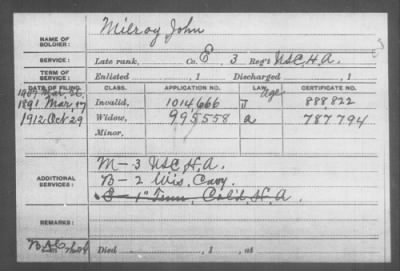 NAME OF SOLDIER: Milroy John
SERVICE: Late rank, Co. E, 3 Reg't U.S.C.H.A.
TERM OF SERVICE: Enlisted , 1 Discharged , 1
DATE OF FILING. CLASS. APPLICATION NO. LAW. CERTIFICATE NO.
1907 Mar.
Age
1891 Mar. 17 Invalid, 1014666 J 888822
1912 Oct 29 Widow, 995558 a 787794
Minor,
M - 3 U.S.C.H.A.
ADDITIONAL SERVICES: B - 2 Wis. Cavy.
1" Tenn. Col'd. H. A.
REMARKS:
Died , 1 , at